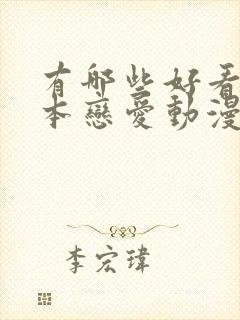 有哪些好看
本戀愛動漫
李宏瑋